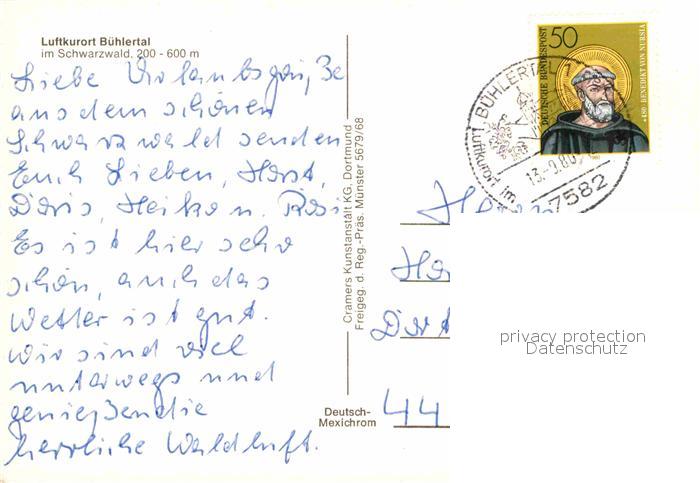 Luftkurort Bühlertal
im Schwarzwald, 200 - 600 m
Liebe Urlaubsgrüße
aus dem schönen
Schwarzwald senden
Euch Lieben, Horst,
Doris, Heiko u. Rosi
Es ist hier sehr
schön, auch das
Wetter ist gut.
Wir sind viel
unterwegs und
genießen die
herrliche Waldluft.
Cramers Kunstanstalt KG, Dortmund
Freigeg. d. Reg.-Präs. Münster 5679/68
Deutsch-
Mexichrom
50
DEUTSCHE BUNDESPOST
*480 · BENEDIKT VON NURSIA
BÜHLERT
Luftkurort im
13.-9.80
7582
Ho
Dort
44
privacy protection
Datenschutz